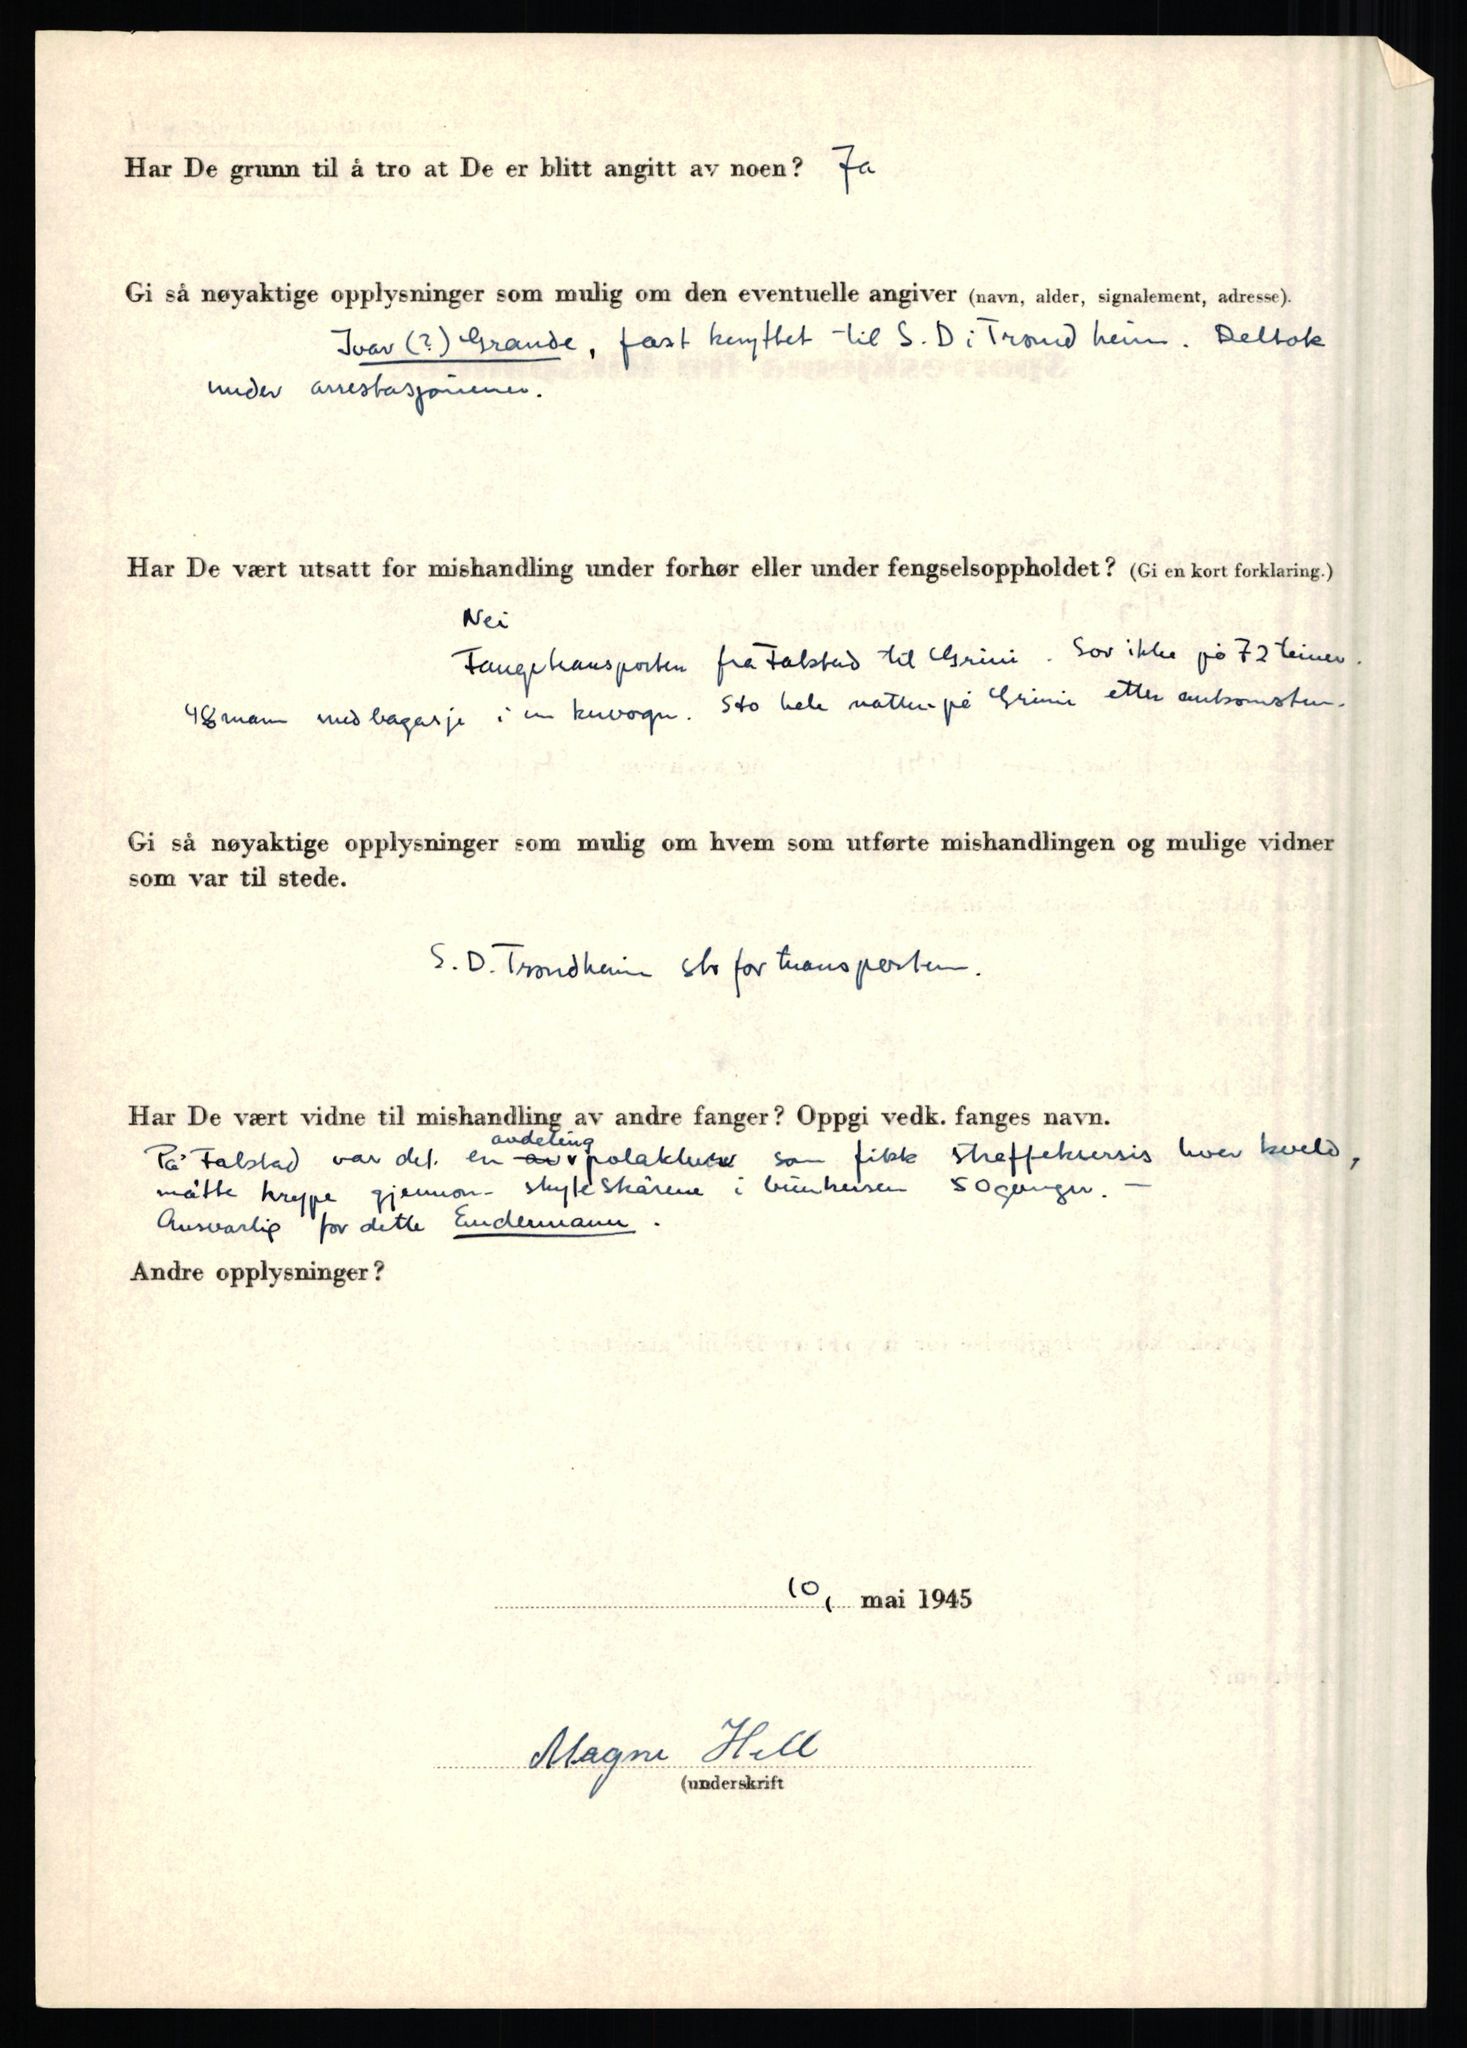 Har De grunn til å tro at De er blitt angitt av noen? Ja
Gi så nøyaktige opplysninger som mulig om den eventuelle angiver (navn, alder, signalement, adresse).
Ivar (?) Grande, fast knyttet til S.D i Trondheim. Deltok
under arrestasjonene.
Har De vært utsatt for mishandling under forhør eller under fengselsoppholdet? (Gi en kort forklaring.)
Nei
Fangetransporten fra Falstad til Grini. Sov ikke på 72 timer.
48 mann med bagasje i en kuvogn. Sto hele natten på Grini etter ankomsten.
Gi så nøyaktige opplysninger som mulig om hvem som utførte mishandlingen og mulige vidner
som var til stede.
S.D. Trondheim sto for transporten.
Har De vært vidne til mishandling av andre fanger? Oppgi vedk. fanges navn.
På Falstad var det en avdeling som fikk straffeksersis hver kveld,
måtte krype gjennom skyteskårene i bunkersen 50 ganger. —
Ansvarlig for dette Endermann.
Andre opplysninger?
10, mai 1945
Magne Hell
(underskrift